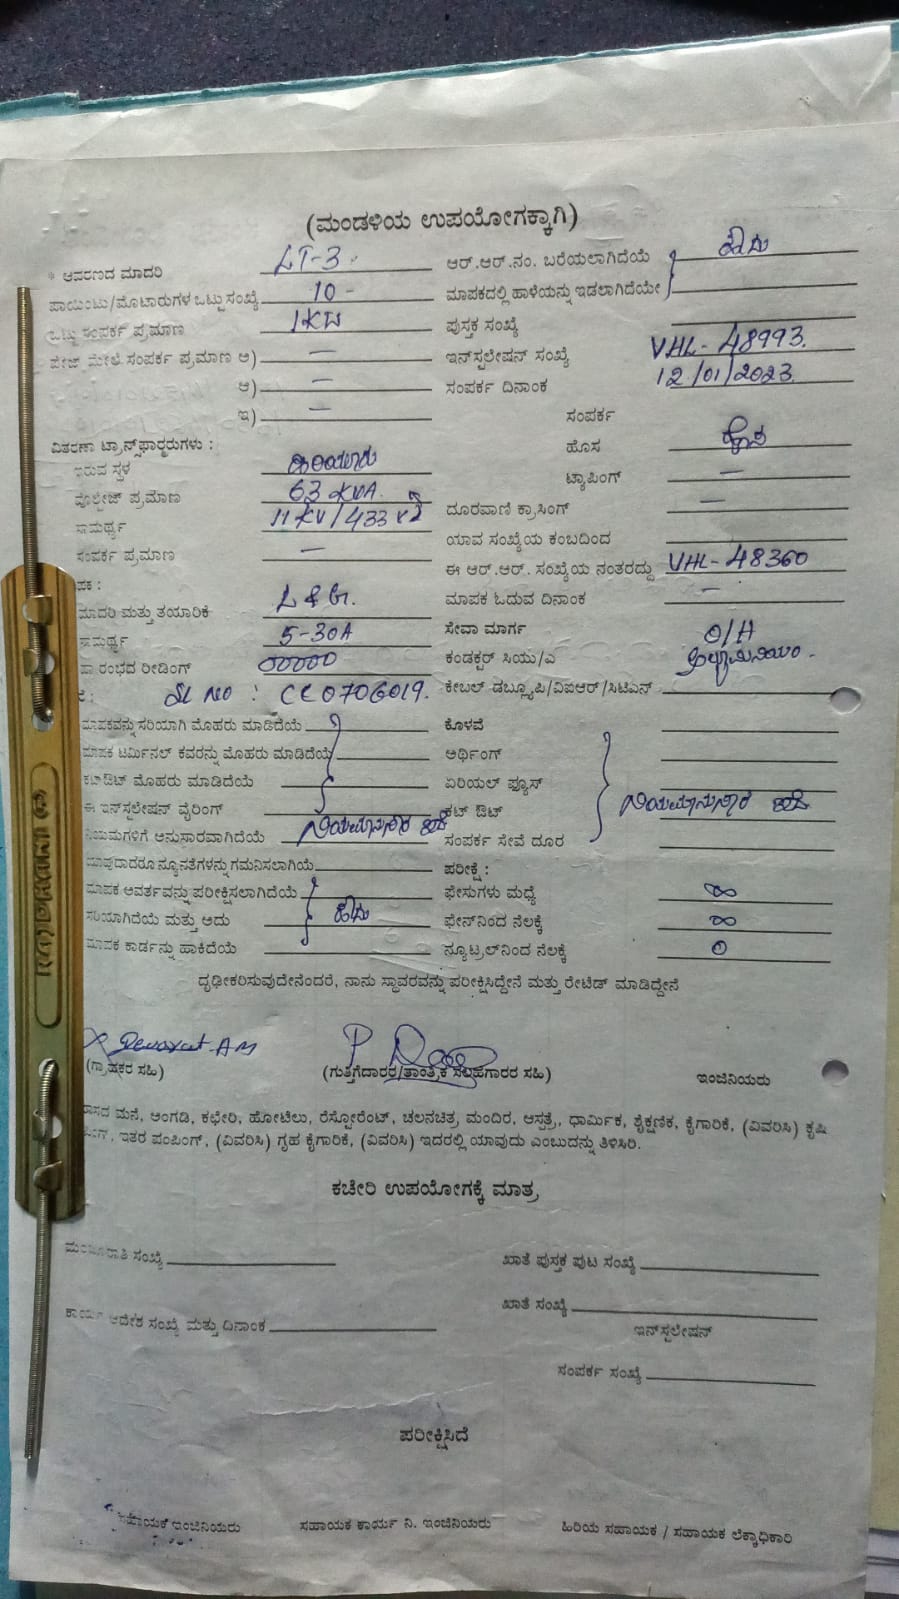 (ಮಂಡಳಿಯ ಉಪಯೋಗಕ್ಕಾಗಿ)
* ಆವರಣದ ಮಾದರಿ LT-3 ಆರ್.ಆರ್.ನಂ. ಬರೆಯಲಾಗಿದೆಯೆ ಹೌದು
ಪಾಯಿಂಟು/ಮೋಟಾರುಗಳ ಒಟ್ಟು ಸಂಖ್ಯೆ 10 - ಮಾಪಕದಲ್ಲಿ ಹಾಳೆಯನ್ನು ಇಡಲಾಗಿದೆಯೇ
ಒಟ್ಟು ಸಂಪರ್ಕ ಪ್ರಮಾಣ 1KW ಪುಸ್ತಕ ಸಂಖ್ಯೆ
ಪೇಜ್ ಮೇಲೆ ಸಂಪರ್ಕ ಪ್ರಮಾಣ ಅ) — ಇನ್‌ಸ್ಟಲೇಷನ್ ಸಂಖ್ಯೆ VHL-48993.
ಆ) — ಸಂಪರ್ಕ ದಿನಾಂಕ 12/01/2023.
ಇ) — ಸಂಪರ್ಕ
ವಿತರಣಾ ಟ್ರಾನ್ಸ್‌ಫಾರ್ಮರುಗಳು : ಹೊಸ ಹೊಸ
ಇರುವ ಸ್ಥಳ ಟ್ಯಾಪಿಂಗ್ —
ವೋಲ್ಟೇಜ್ ಪ್ರಮಾಣ 63 KVA. ದೂರವಾಣಿ ಕ್ರಾಸಿಂಗ್ —
ಸಾಮರ್ಥ್ಯ 11 KV/433 ಯಾವ ಸಂಖ್ಯೆಯ ಕಂಬದಿಂದ
ಸಂಪರ್ಕ ಪ್ರಮಾಣ — ಈ ಆರ್.ಆರ್. ಸಂಖ್ಯೆಯ ನಂತರದ್ದು VHL-48360
ಪಕ : ಮಾಪಕ ಓದುವ ದಿನಾಂಕ —
ಮಾದರಿ ಮತ್ತು ತಯಾರಿಕೆ L & G. ಸೇವಾ ಮಾರ್ಗ O/H
ಸಾಮರ್ಥ್ಯ 5-30A ಕಂಡಕ್ಟರ್ ಸಿಯು/ಎ ಅಲ್ಯೂಮಿನಿಯಂ.
ಪ್ರಾರಂಭದ ರೀಡಿಂಗ್ 00000 ಕೇಬಲ್ ಡಬ್ಲ್ಯೂಪಿ/ವಿಐಆರ್/ಸಿಟಿಎಸ್
Sl No : CC0706019.
ಮಾಪಕವನ್ನು ಸರಿಯಾಗಿ ಮೊಹರು ಮಾಡಿದೆಯೆ ಕೊಳವೆ
ಮಾಪಕ ಟರ್ಮಿನಲ್ ಕವರನ್ನು ಮೊಹರು ಮಾಡಿದೆಯೆ ಅರ್ಥಿಂಗ್
ಕಟ್‌ಔಟ್ ಮೊಹರು ಮಾಡಿದೆಯೆ ಏರಿಯಲ್ ಫ್ಯೂಸ್
ಈ ಇನ್‌ಸ್ಟಲೇಷನ್ ವೈರಿಂಗ್ ಕಟ್ ಔಟ್ ನಿಯಮಾನುಸಾರ ಇದೆ
ನಿಯಮಗಳಿಗೆ ಅನುಸಾರವಾಗಿದೆಯೆ ನಿಯಮಾನುಸಾರ ಇದೆ ಸಂಪರ್ಕ ಸೇವೆ ದೂರ
ಯಾವುದಾದರೂ ನ್ಯೂನತೆಗಳನ್ನು ಗಮನಿಸಲಾಗಿಯೆ ಪರೀಕ್ಷೆ :
ಮಾಪಕ ಆವರ್ತವನ್ನು ಪರೀಕ್ಷಿಸಲಾಗಿದೆಯೆ ಫೇಸುಗಳು ಮಧ್ಯೆ ∞
ಸರಿಯಾಗಿದೆಯೆ ಮತ್ತು ಅದು ಹೌದು ಫೇಸ್‌ನಿಂದ ನೆಲಕ್ಕೆ ∞
ಮಾಪಕ ಕಾರ್ಡನ್ನು ಹಾಕಿದೆಯೆ ನ್ಯೂಟ್ರಲ್‌ನಿಂದ ನೆಲಕ್ಕೆ 0
ದೃಢೀಕರಿಸುವುದೇನೆಂದರೆ, ನಾನು ಸ್ಥಾವರವನ್ನು ಪರೀಕ್ಷಿಸಿದ್ದೇನೆ ಮತ್ತು ರೇಟೆಡ್ ಮಾಡಿದ್ದೇನೆ
(ಗ್ರಾಹಕರ ಸಹಿ) (ಗುತ್ತಿಗೆದಾರರ/ತಾಂತ್ರಿಕ ಸಲಹೆಗಾರರ ಸಹಿ) ಇಂಜಿನಿಯರು
ವಾಸದ ಮನೆ, ಅಂಗಡಿ, ಕಛೇರಿ, ಹೋಟೆಲು, ರೆಸ್ಟೋರೆಂಟ್, ಚಲನಚಿತ್ರ ಮಂದಿರ, ಆಸ್ಪತ್ರೆ, ಧಾರ್ಮಿಕ, ಶೈಕ್ಷಣಿಕ, ಕೈಗಾರಿಕೆ, (ವಿವರಿಸಿ) ಕೃಷಿ
ಇತರ ಪಂಪಿಂಗ್, (ವಿವರಿಸಿ) ಗೃಹ ಕೈಗಾರಿಕೆ, (ವಿವರಿಸಿ) ಇದರಲ್ಲಿ ಯಾವುದು ಎಂಬುದನ್ನು ತಿಳಿಸಿರಿ.
ಕಚೇರಿ ಉಪಯೋಗಕ್ಕೆ ಮಾತ್ರ
ಮಂಜೂರಾತಿ ಸಂಖ್ಯೆ ಖಾತೆ ಪುಸ್ತಕ ಪುಟ ಸಂಖ್ಯೆ
ಖಾತೆ ಸಂಖ್ಯೆ
ಕಾರ್ಯ ಆದೇಶ ಸಂಖ್ಯೆ ಮತ್ತು ದಿನಾಂಕ ಇನ್‌ಸ್ಟಲೇಷನ್
ಸಂಪರ್ಕ ಸಂಖ್ಯೆ
ಪರೀಕ್ಷಿಸಿದೆ
ಸಹಾಯಕ ಇಂಜಿನಿಯರು ಸಹಾಯಕ ಕಾರ್ಯ ನಿ. ಇಂಜಿನಿಯರು ಹಿರಿಯ ಸಹಾಯಕ / ಸಹಾಯಕ ಲೆಕ್ಕಾಧಿಕಾರಿ